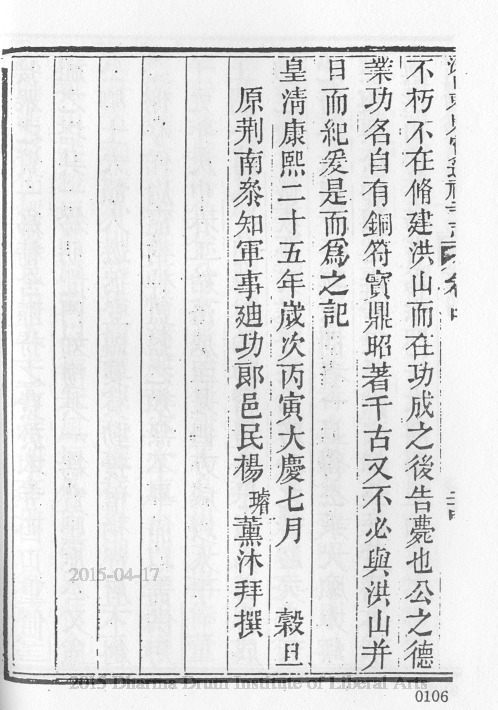 不朽不在脩建洪山而在功成之後告也公之德
業功名自有銅符寳鼎昭著千古又不必與洪山并
日而紀爰是而爲之記
皇淸康熙二十五年歲次丙寅大慶七月 穀旦
原荆南叅知軍事廸功郎邑民楊 薰沐拜撰
2015-04-17
2015 Dharma Drum Institute of Liberal Arts
0106